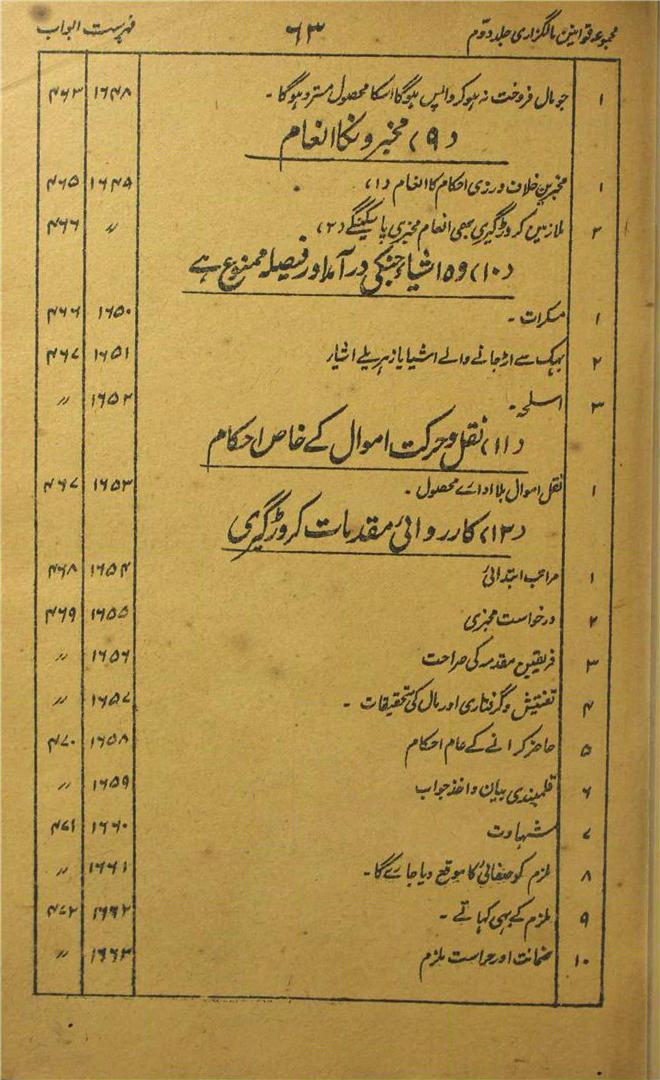 مجموعہ قوانین مالگزاری جلد دوم ۶۳ فہرست ابواب
۱ جو مال فروخت نہ ہو کر واپس ہوگا اسکا محصول مسترد ہوگا۔ ۱۶۴۸ ۴۶۳
(۹) مخبرونکا انعام
۱ مخبرین خلاف ورزی احکام کا انعام (۱) ۱۶۴۹ ۴۶۵
۲ ملازمین کروڑگیری بھی انعام مخبری پاسکینگے (۲) 〃 ۴۶۶
(۱۰) وہ اشیاء جنکی درآمد اور فیصلہ ممنوع ہے
۱ مسکرات۔ ۱۶۵۰ ۴۶۶
۲ بھک سے اڑجانے والے اشیا یا زہریلے اشیار ۱۶۵۱ ۴۶۷
۳ اسلحہ۔ ۱۶۵۲ 〃
(۱۱) نقل و حرکت اموال کے خاص احکام
۱ نقل اموال بلا اداے محصول۔ ۱۶۵۳ ۴۶۷
(۱۲) کارروائی مقدمات کروڑگیری
۱ مراتب ابتدائی ۱۶۵۴ ۴۶۸
۲ درخواست مخبری ۱۶۵۵ ۴۶۹
۳ فریقین مقدمہ کی صراحت ۱۶۵۶ 〃
۴ تفتیش و گرفتاری اور مال کی تحقیقات۔ ۱۶۵۷ 〃
۵ حاضر کرانے کے عام احکام ۱۶۵۸ ۴۷۰
۶ قلمبندی بیان و اخذ جواب ۱۶۵۹ 〃
۷ شہادت ۱۶۶۰ ۴۷۱
۸ ملزم کو صفائی کا موقع دیا جاے گا۔ ۱۶۶۱ 〃
۹ ملزم کے بہی کھاتے۔ ۱۶۶۲ ۴۷۲
۱۰ ضمانت اور حراست ملزم ۱۶۶۳ 〃